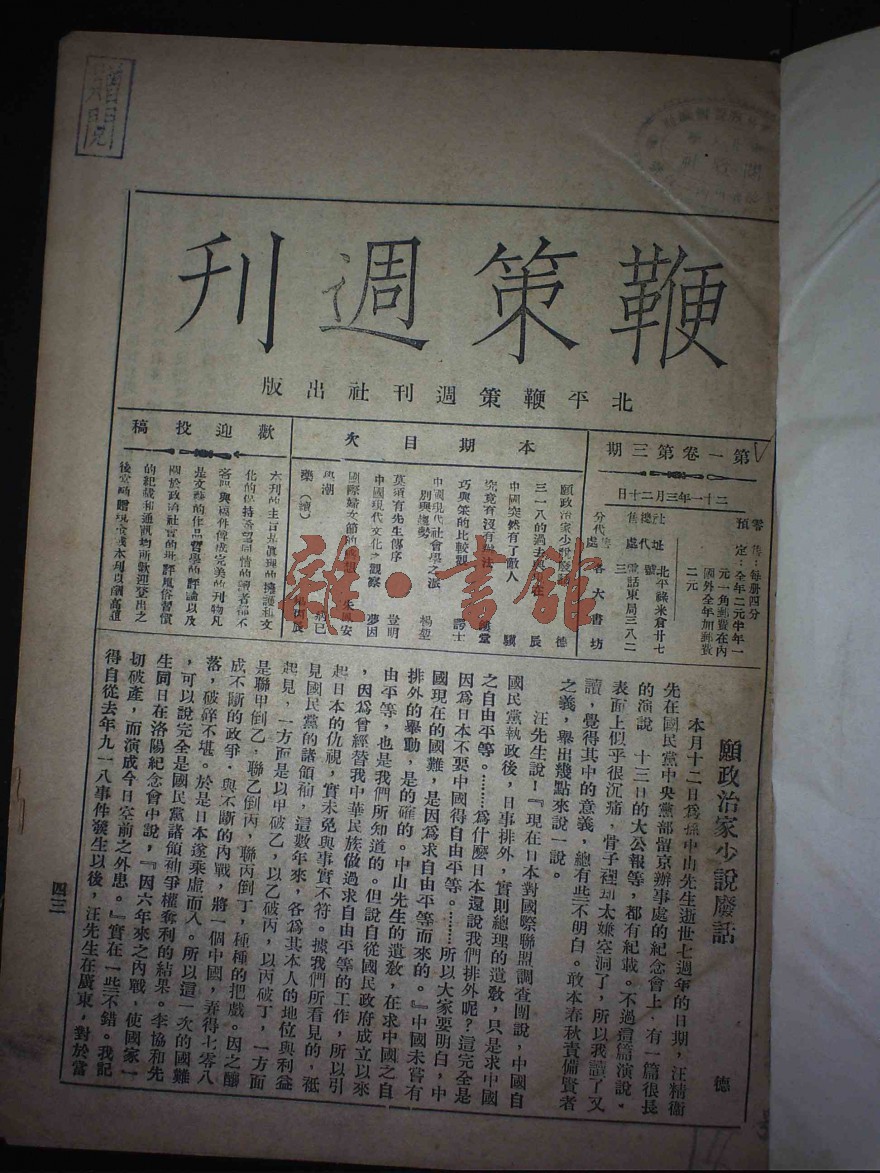 贈閱
鞭策週刊
北平鞭策週刊社出版
第一卷第三期
二十一年三月二十日
零售：每册四分
預定：全年二元半年一
元一角郵費在內
國外全年加郵費
二元
社址 北平祿米倉廿七
號
電話東局三八二
三
總代售處
分代售處 各大書坊
本期目次
願政治家少說廢話 德
三一八的過去與現在 辰
中國突然有了敵人 驥
究竟有沒有辦法
巧與笨的比較觀 爵士
中國現代社會學之派
別與趨勢 楊堃
莫須有先生傳序 豈明
中國現代文化之觀察 夢因
國際婦女節的
風潮
藥（續）
歡迎投稿
本刊的主旨是眞理的擁護和文
化的保持希望同情的讀者都不
吝與援件俾成完美的刊物凡
是文藝的作品哲學的評論以及
關於政治社會的批評風俗習慣
的紀載和通訊均所歡迎登出之
後當酌贈現金或本刊以酬高誼
雜·書館
願政治家少說廢話 德
本月十二日爲孫中山先生逝世七週年的日期，汪精衞
先在國民黨中央黨部留京辦事處的紀念會上，有一篇很長
的演說，十三日的大公報等，都有紀載。不過這篇演說，
表面上似乎很沉痛，骨子裡却太嫌空洞了，所以我讀了又
讀，覺得其中的意義，總有些不明白。敢本春秋責備賢者
之義，舉出幾點來說一說。
汪先生說！『現在日本對國際聯盟調查團說，中國自
國民黨執政後，日事排外，實則總理的遺敎，只是求中國
之自由平等。………爲什麼日本還說我們排外呢？這完全是
因爲日本不要中國得自由平等。………所以大家要明白，中
國現在的國難，是因爲求自由平等而來的。』中國未嘗有
排外的舉動，是的確的。中山先生的遺敎，在求中國之自
由平等，也是我們所知道的。但說自從國民政府成立以來
，因爲曾經替我中華民族做過求自由平等的工作，所以引
起日本的仇視，實未免與事實不符。據我們所看見的，祇
見國民黨的諸領袖，這數年來，各爲其本人的地位與利益
起見，一方面是以甲破乙，以乙破丙，以丙破丁，一方面
是聯甲倒乙，聯乙倒丙，聯丙倒丁，種種的把戲。因之釀
成不斷的政爭，與不斷的內戰，將一個中國，弄得七零八
落，破碎不堪。於是日本遂乘虛而入。所以這一次的國難
，可以說完全是國民黨諸領袖爭權奪利的結果。李協和先
生同日在洛陽紀念會中說，『因六年來之內戰，使國家一
切破產，而演成今日空前之外患。』實在一些不錯。我記
得自從去年九一八事件發生以後，汪先生在廣東，對於當
四三